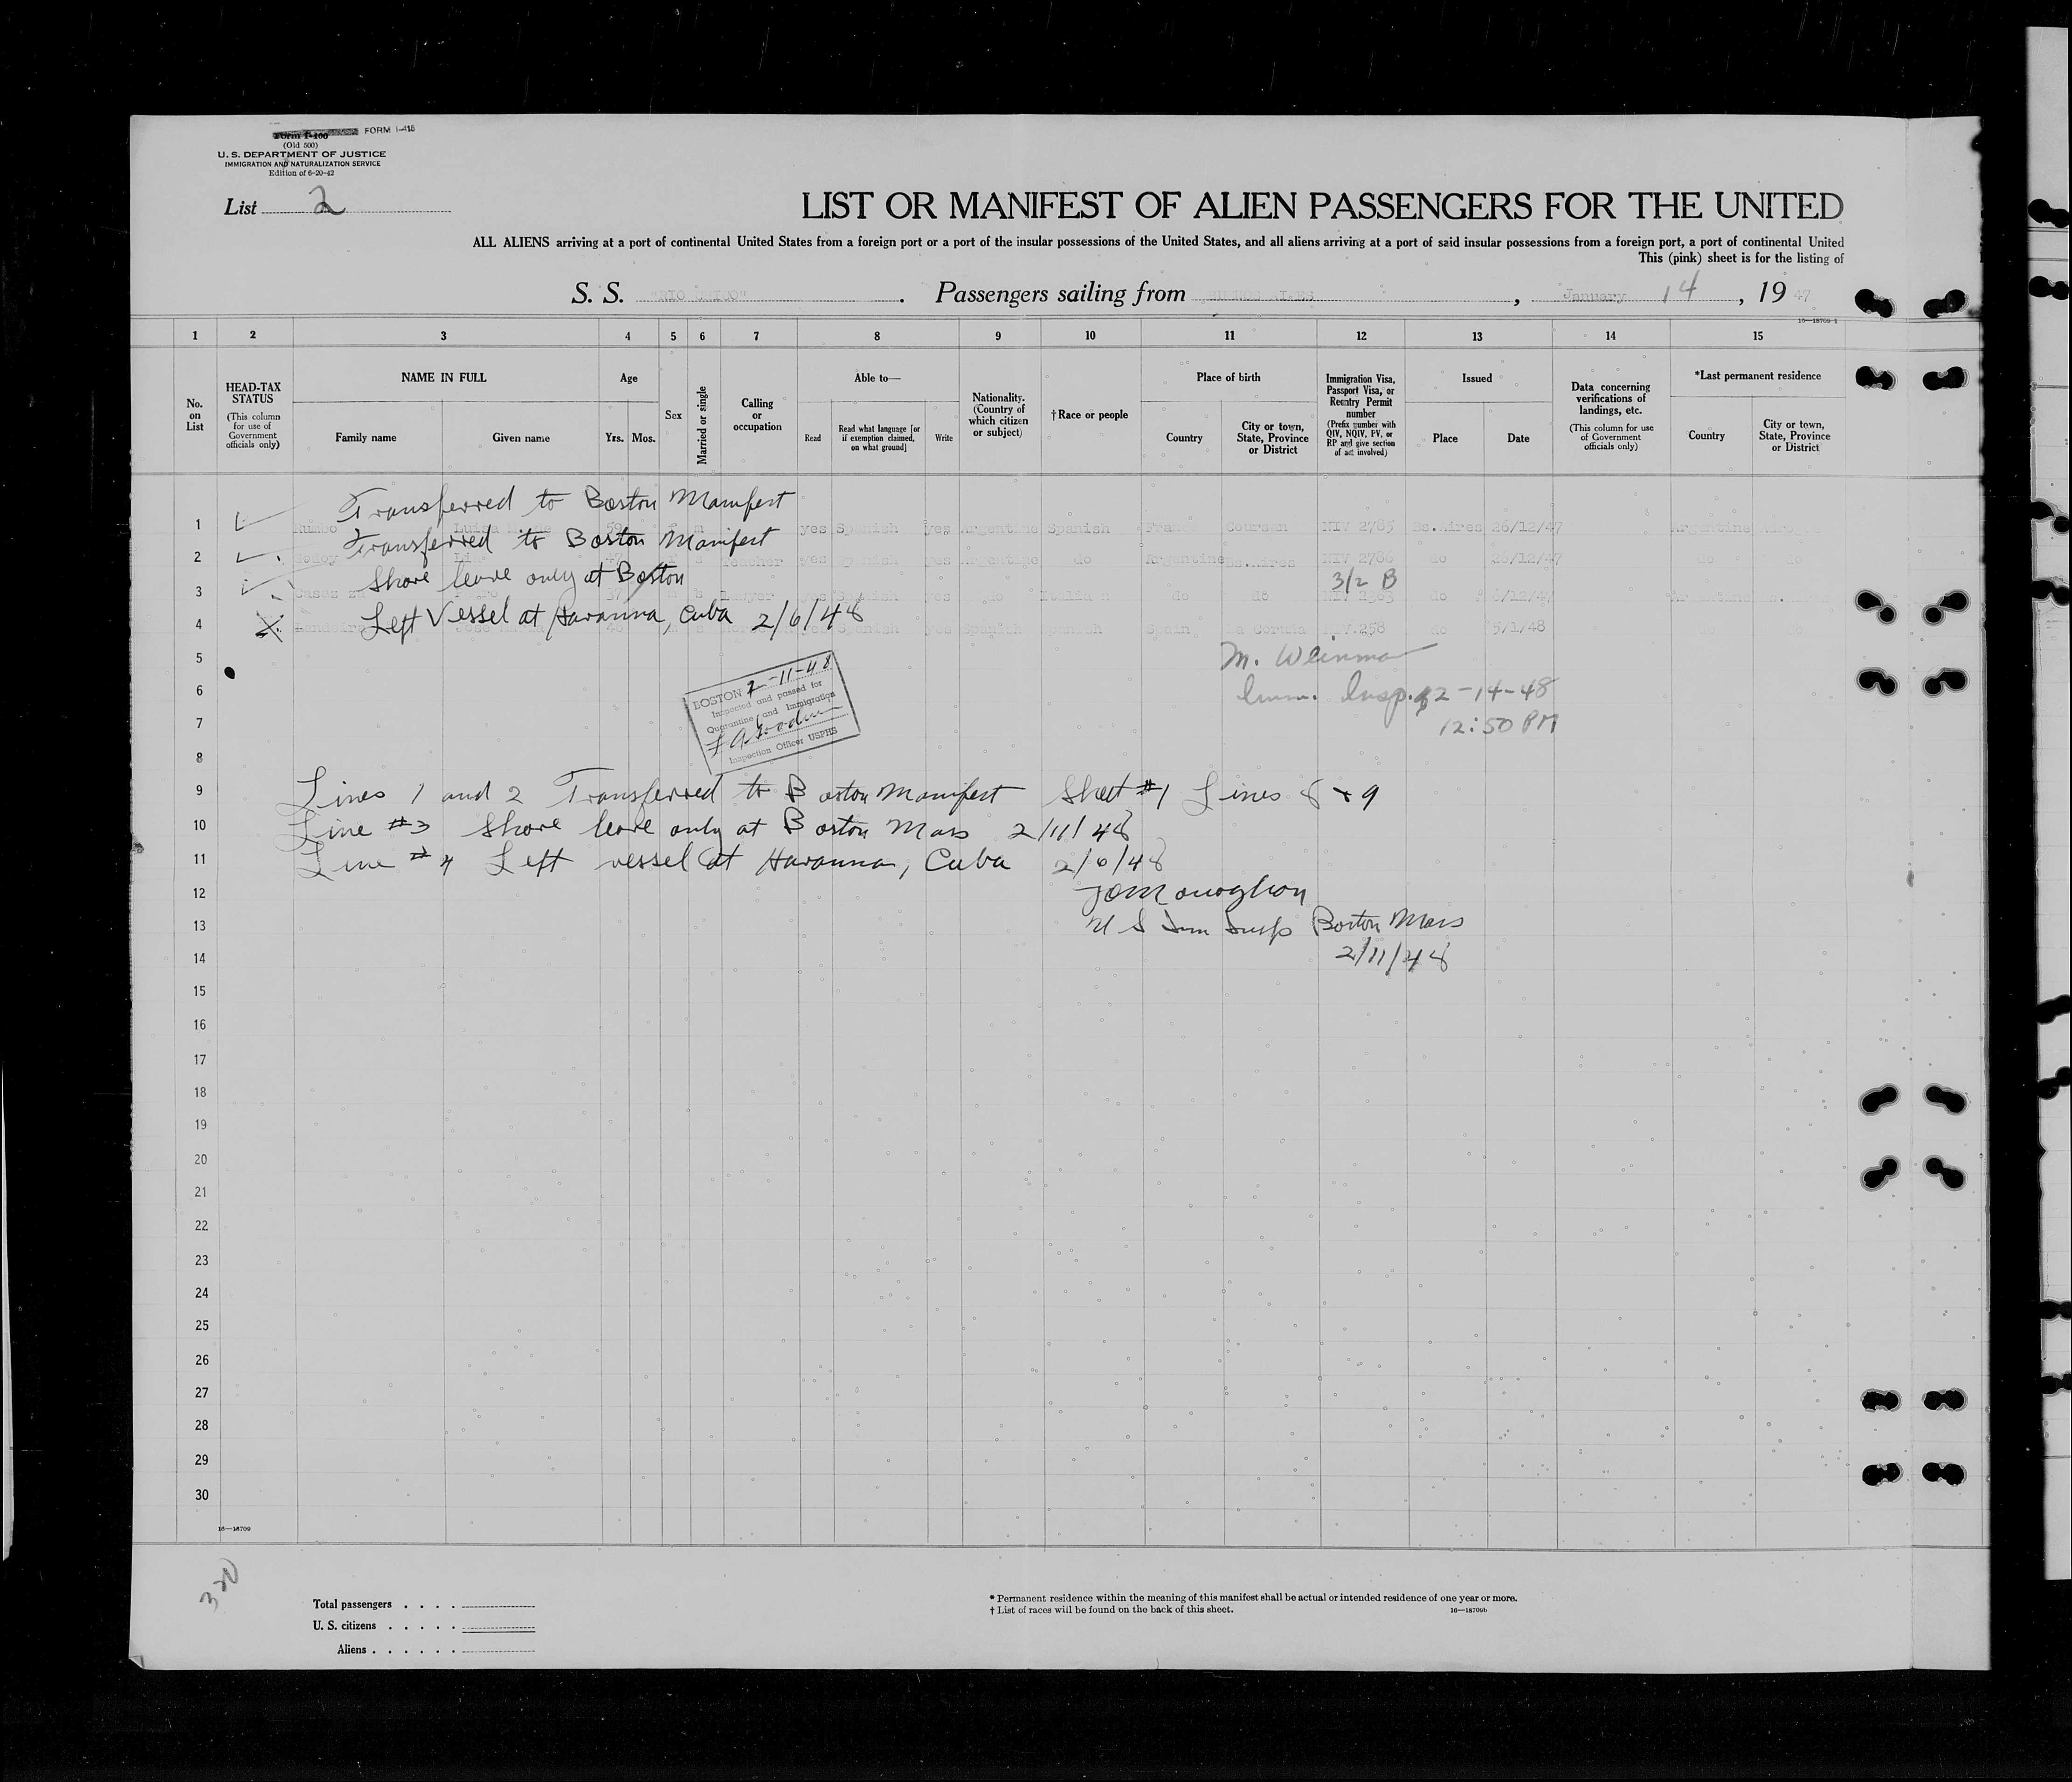 Form I-400 FORM I-415
(Old 500)
U. S. DEPARTMENT OF JUSTICE
IMMIGRATION AND NATURALIZATION SERVICE
Edition of 6-20-42
List 2
LIST OR MANIFEST OF ALIEN PASSENGERS FOR THE UNITED
ALL ALIENS arriving at a port of continental United States from a foreign port or a port of the insular possessions of the United States, and all aliens arriving at a port of said insular possessions from a foreign port, a port of continental United
This (pink) sheet is for the listing of
S. S. "RIO CHICO". Passengers sailing from BUENOS AIRES, January 14, 1947
16—18709-1
1 2 3 4 5 6 7 8 9 10 11 12 13 14 15
No. on List
HEAD-TAX STATUS
(This column for use of Government officials only)
NAME IN FULL
Family name Given name
Age
Yrs. Mos.
Sex
Married or single
Calling or occupation
Able to—
Read Read what language [or if exemption claimed, on what ground] Write
Nationality. (Country of which citizen or subject)
†Race or people
Place of birth
Country City or town, State, Province or District
Immigration Visa, Passport Visa, or Reentry Permit number
(Prefix number with QIV, NQIV, PV, or RP and give section of act involved)
Issued
Place Date
Data concerning verifications of landings, etc.
(This column for use of Government officials only)
*Last permanent residence
Country City or town, State, Province or District
Transferred to Boston Manifest
1 Rumbo Luisa 59 m yes Spanish yes Argentine Spanish France NIV 2785 Bs.Aires 26/12/47 Argentine
Transferred to Boston Manifest
2 yes Spanish yes Argentine do Argentine Bs.Aires NIV 2786 do 26/12/47 do do
Shore leave only at Boston 3/2 B
3 37 Lawyer yes Spanish yes do Italian do do do
Left Vessel at Havanna, Cuba 2/6/48
4 Jose Spanish yes Spanish Spanish Spain La Coruna NIV.258 do 5/1/48 do do
5 M. Weinman
6 Imm. Insp. 2-14-48
7 12:50 PM
BOSTON 2-11-48
Inspected and passed for
Quarantine and Immigration
Inspection Officer USPHS
8
9 Lines 1 and 2 Transferred to Boston Manifest Sheet #1 Lines 8 + 9
10 Line #3 Shore leave only at Boston Mass 2/11/48
11 Line #4 Left vessel at Havanna, Cuba 2/6/48
12 JOMonaghan
13 U S Imm Insp Boston Mass
14 2/11/48
15
16
17
18
19
20
21
22
23
24
25
26
27
28
29
30
16—18709
320
Total passengers
U. S. citizens
Aliens
* Permanent residence within the meaning of this manifest shall be actual or intended residence of one year or more.
† List of races will be found on the back of this sheet.
16—18709b